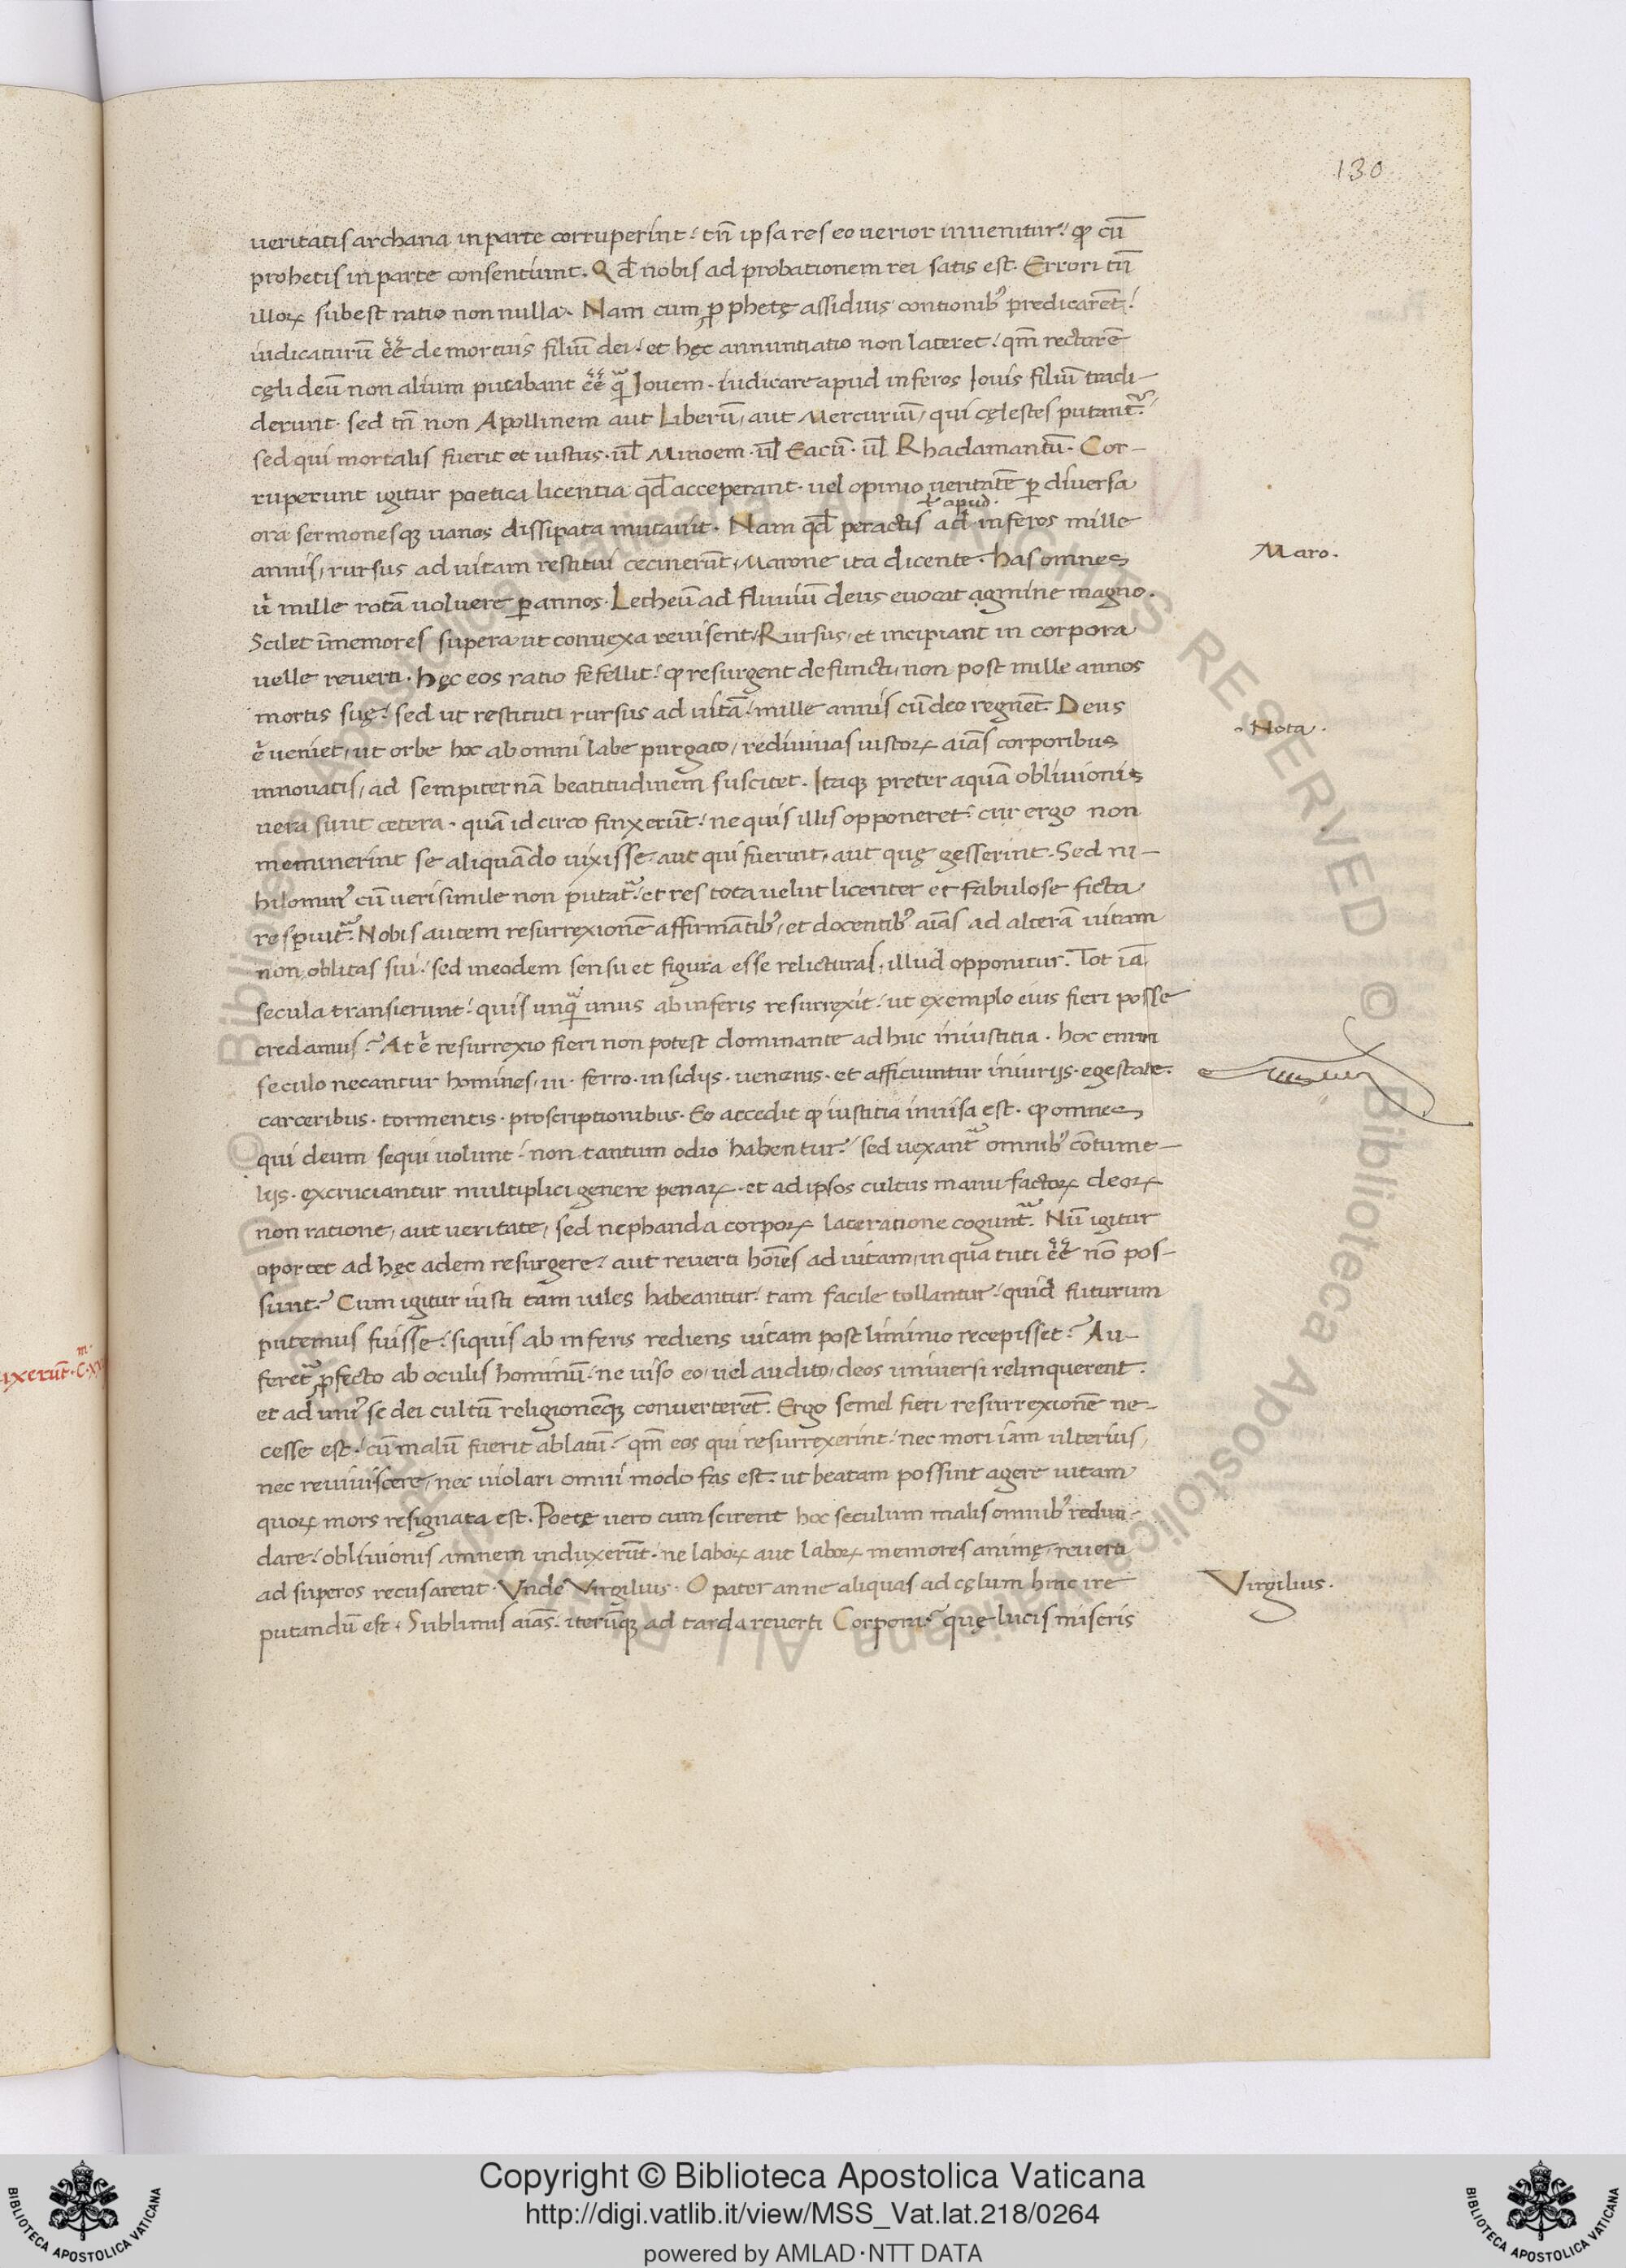 130
veritatis archana in parte corruperint: tn̄ ipsa res eo verior invenitur: ꝙ cū
prohetis in parte consentiunt. Qd̄ nobis ad probationem rei satis est. Errori tn̄
illoꝝ subest ratio non nulla. Nam cum ꝓphetę assiduis contionibꝰ predicarēt:
iudicaturū eē de mortuis filiū dei: et hęc annuntiatio non lateret: qm̄ rectorē
cęli deū non alium putabant eē qͣ Iovem. iudicare apud inferos Iovis filiū tradi-
derunt. sed tn̄ non Apollinem aut Liberū, aut Mercuriū, qui cęlestes putantᷣ:
sed qui mortalis fuerit et iustus. ul̄ Minoem. ul̄ Eacū. ul̄ Rhadamantū. Cor-
ruperunt igitur poetica licentia qd̄ acceperant. vel opinio veritatē ꝑ diversa
ora sermonesqꝫ vanos dissipata mutavit. Nam qd̄ peractis ad inferos mille
ł apud.
annis, rursus ad vitam restitui cecinerūt, Marone ita dicente. has omnes
Maro.
ū mille rotā volvere ꝑ annos. Letheū ad fluviū deus evocat agmine magno.
Scilet īmemores supera ut convexa revisent, Rursus, et incipiant in corpora
velle reverti. Hęc eos ratio fefellit: ꝙ resurgent defuncti, non post mille annos
mortis suę: sed ut restituti rursus ad vitā: mille annis cū deo regnēt. Deus
Nota.
ē veniet, ut orbe hoc ab omni labe purgato, redivivas iustoꝝ aīas corporibus
innovatis, ad sempiternā beatitudinem suscitet. Itaqꝫ preter aquā oblivionis
vera sunt cetera. quā id circo finxerūt: ne quis illis opponeret: cur ergo non
meminerint se aliquando vixisse: aut qui fuerint, aut quę gesserint. Sed ni-
hilominꝰ cū verisimile non putatᷣ: et res tota velut licenter et fabulose ficta
respuitᷣ. Nobis autem resurrexionē affirmātibꝰ, et docentibꝰ aīas ad alterā vitam
non oblitas sui: sed in eodem sensu et figura esse relicturas: illud opponitur. Tot iā
secula transierunt: quis unqͣ unus ab inferis resurrexit: ut exemplo eius fieri posse
credamus? At ē resurrexio fieri non potest dominante ad huc iniustitia. hoc enim
seculo necantur homines, vi. ferro. insidijs. venenis. et afficiuntur iniurijs. egestate.
carceribus. tormentis. proscriptionibus. Eo accedit ꝙ iustitia invisa est. ꝙ omnes
qui deum sequi volunt: non tantum odio habentur: sed vexantᷣ omnibꝰ cōtume-
lijs. excruciantur multiplici genere penaꝝ. et ad ipsos cultus manu factoꝝ deoꝝ
non ratione, aut veritate, sed nephanda corpoꝝ laceratione coguntᷣ. Nū igitur
oportet ad hęc adem resurgere: aut reverti hoīes ad vitam, in qua tuti eē nō pos-
sunt? Cum igitur iusti tam viles habeantur: tam facile tollantur: quid futurum
putemus fuisse: siquis ab inferis rediens vitam post liminio recepisset? Au-
feretᷣ ꝓfecto ab oculis hominū: ne viso eo, vel audito, deos universi relinquerent:
et ad uniꝰ se dei cultū religionēqꝫ converterēt. Ergo semel fieri resurrexionē ne-
cesse est: cū malū fuerit ablatū: qm̄ eos qui resurrexerint: nec mori iam ulterius,
nec reviviscere, nec violari omni modo fas est: ut beatam possint agere vitam
quoꝝ mors resignata est. Poetę vero cum scirent hoc seculum malis omnibꝰ redun-
dare: oblivionis amnem induxerūt. ne laboꝝ aut laboꝝ memores animę, reverti
ad superos recusarent. Unde Virgilius. O pater anne aliquas ad cęlum hinc ire
Virgilius.
putandū est. Sublimis aīas: iterūqꝫ ad tarda reverti Corpora? quę lucis miseris
ixerūt. C. XX
Copyright © Biblioteca Apostolica Vaticana
http://digi.vatlib.it/view/MSS_Vat.lat.218/0264
powered by AMLAD·NTT DATA
BIBLIOTECA APOSTOLICA VATICANA
BIBLIOTECA APOSTOLICA VATICANA